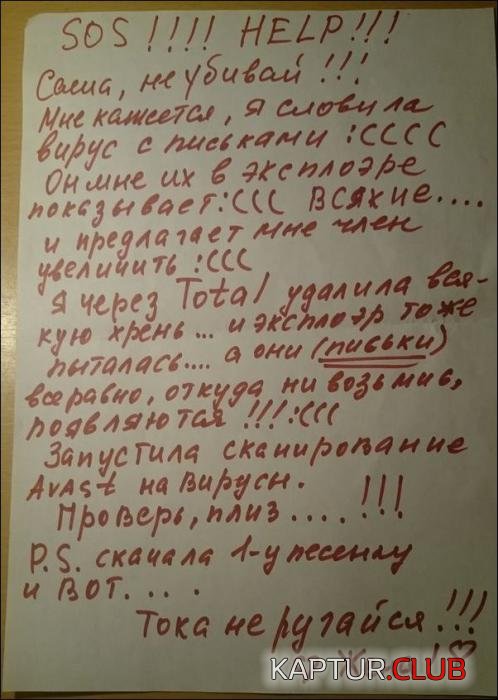 SOS!!!! HELP!!!
Саша, не убивай!!!
Мне кажется, я словила
вирус с письками :СССС
Он мне их в эксплоэре
показывает:((( ВСЯКИЕ....
и предлагает мне член
увеличить :(((
Я через Total удалила вся-
кую хрень... и эксплоэр тоже
пыталась.... а они (письки)
всеравно, откуда ни возьмись,
появляются !!!:(((
Запустила сканирование
Avast на вирусы.
Проверь, плиз.... !!!
P.S. скачала 1-у песенку
и ВОТ....
Тока не ругайся!!!
KAPTUR.CLUB